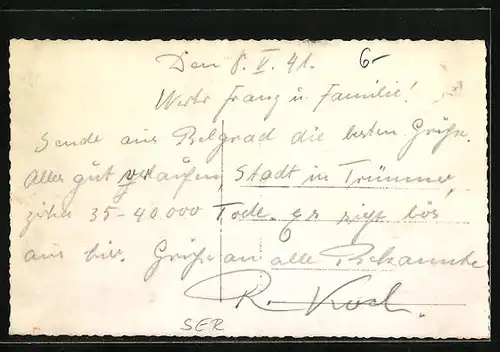 Den 8. V. 41. 6-
Werte Franz u. Familie!
Sende aus Belgrad die besten Grüße.
Alles gut verlaufen, Stadt in Trümmer,
zirka 35-40.000 Tode. es sieht bös
aus hier. Grüße an alle Bekannte
R. Koch.
SER